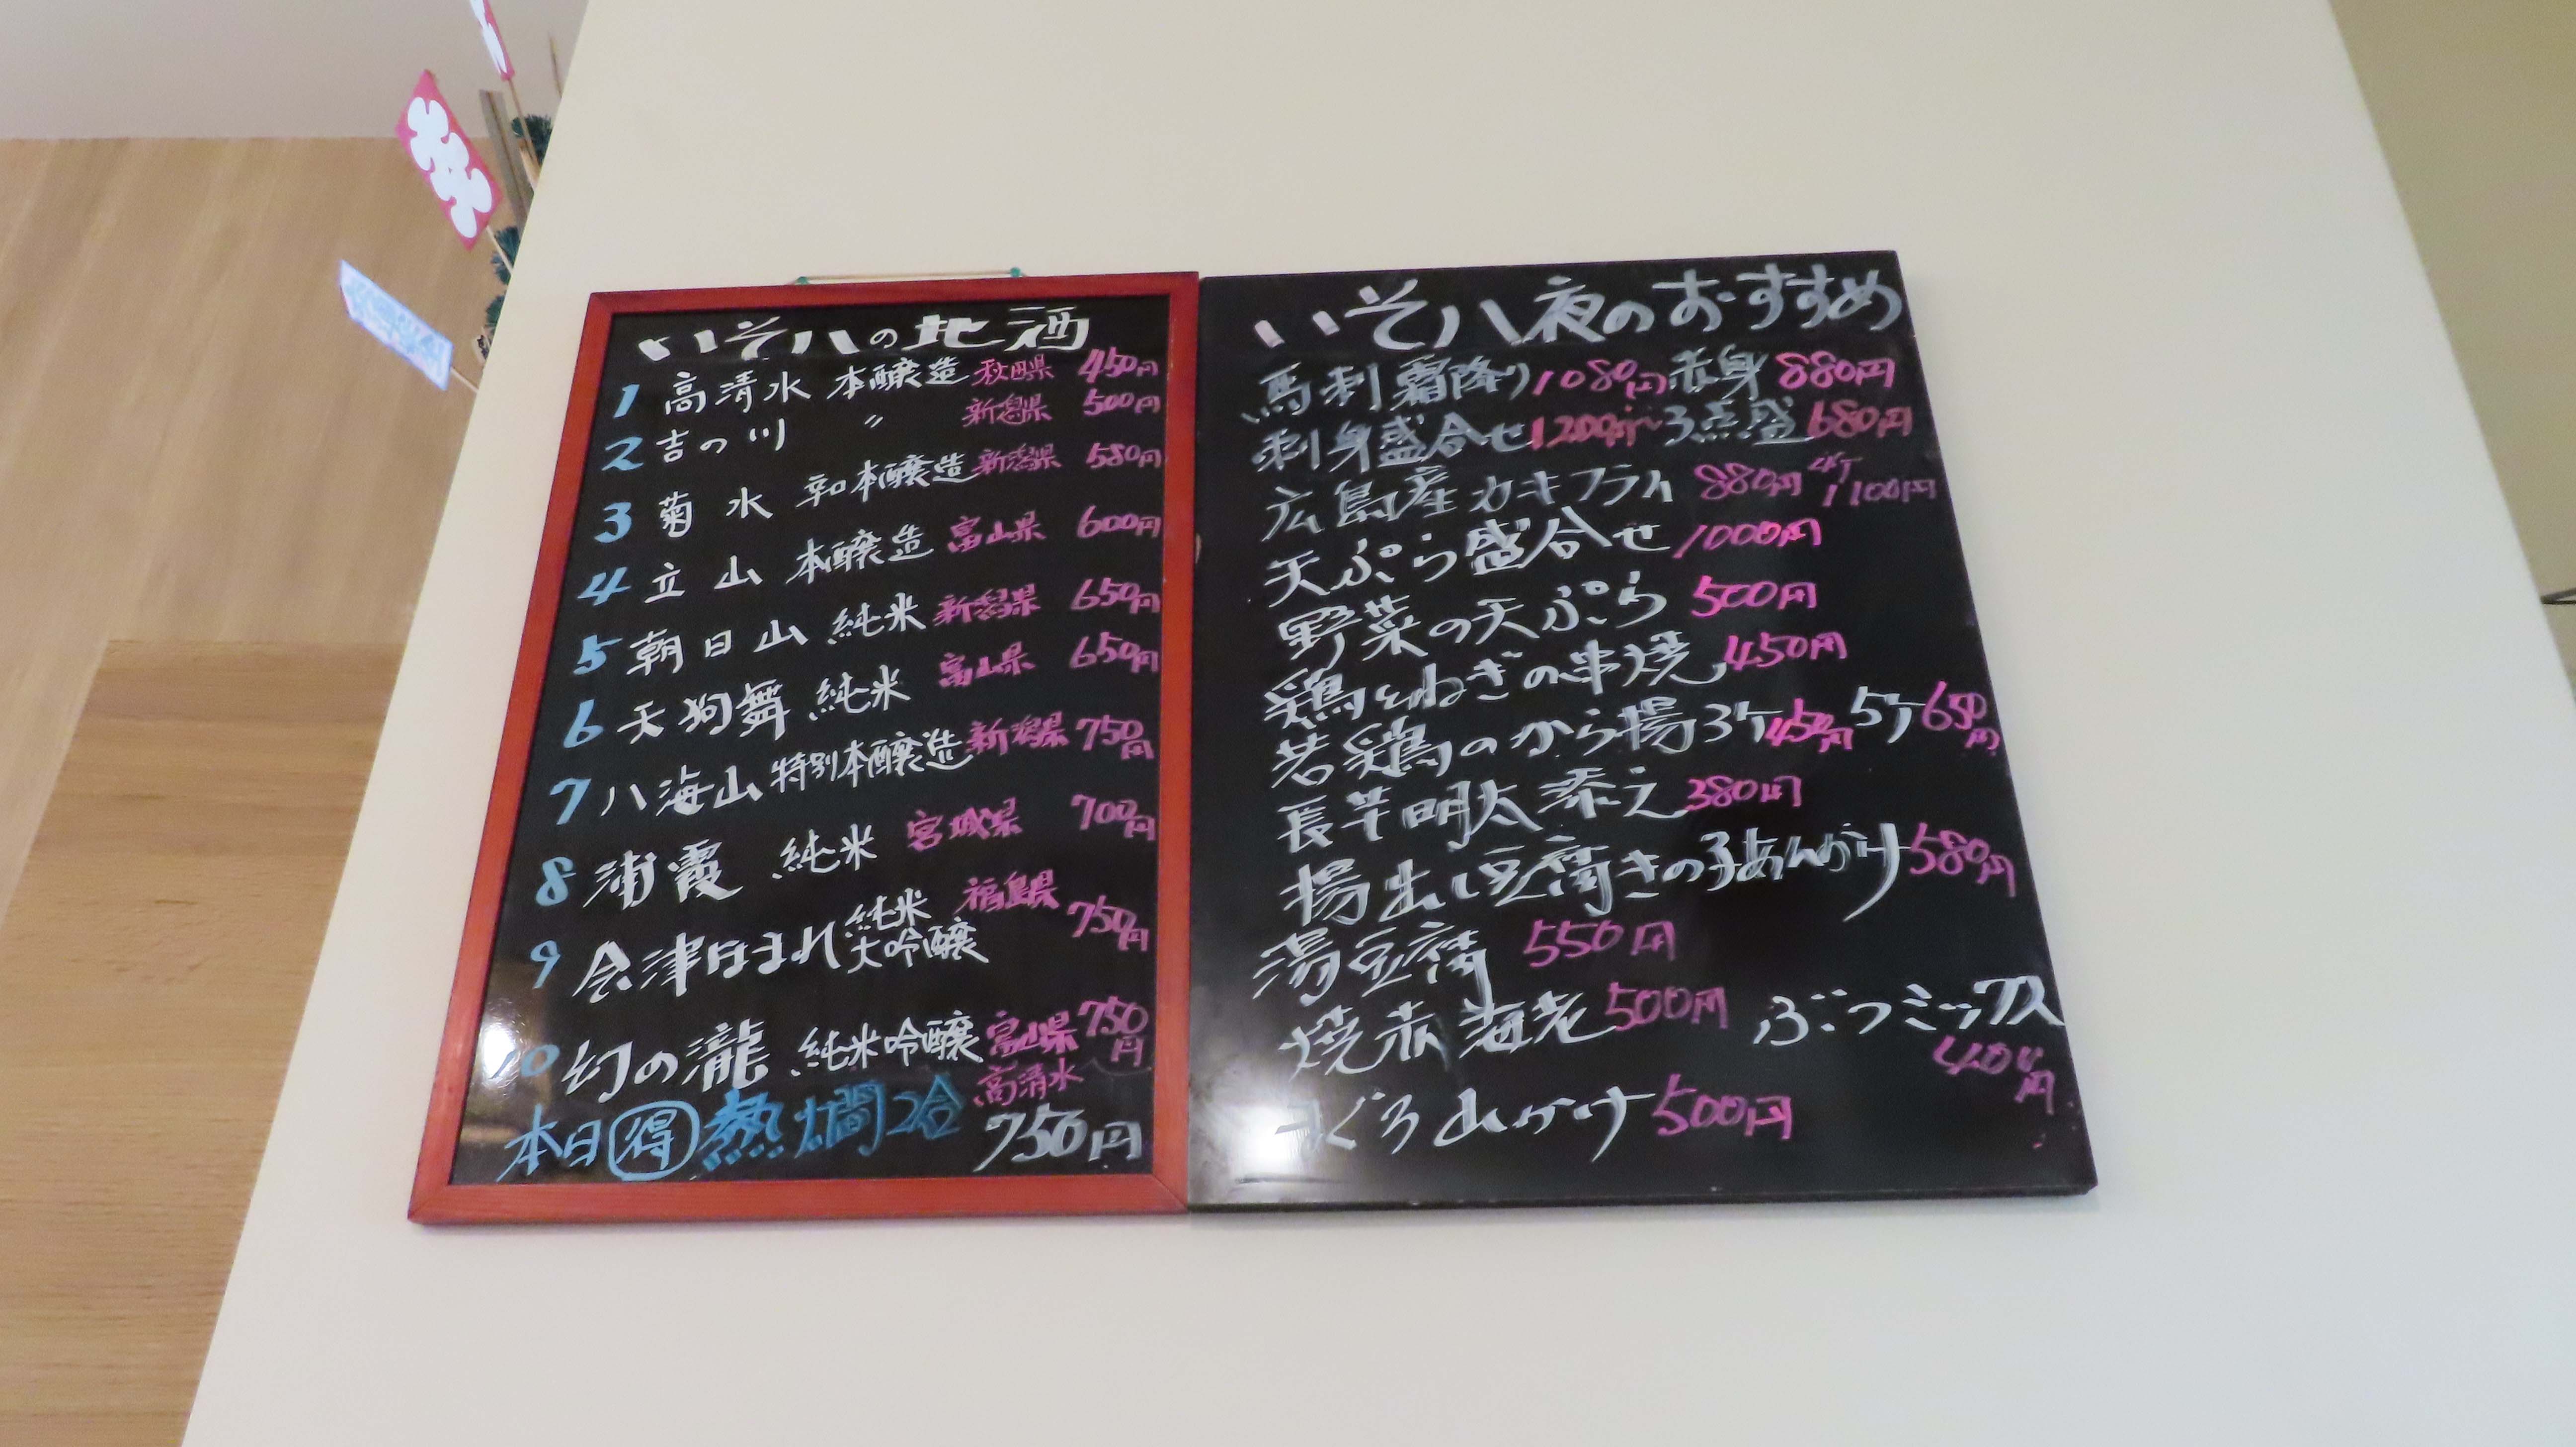 いそ八の地酒
1 高清水 本醸造 秋田県 450円
2 吉の川 〃 新潟県 500円
3 菊水 辛口本醸造 新潟県 580円
4 立山 本醸造 富山県 600円
5 朝日山 純米 新潟県 650円
6 天狗舞 純米 富山県 650円
7 八海山 特別本醸造 新潟県 750円
8 浦霞 純米 宮城県 700円
9 会津ほまれ 純米大吟醸 福島県 750円
10 幻の瀧 純米吟醸 富山県 750円
本日得 熱燗2合 高清水 750円
いそ八夜のおすすめ
馬刺 霜降り 1080円 赤身 880円
刺身盛合せ 1200円〜 3点盛 680円
広島産カキフライ 880円 4ケ 1100円
天ぷら盛合せ 1000円
野菜の天ぷら 500円
鶏とねぎの串焼 450円
若鶏のから揚 3ケ 450円 5ケ 650円
長芋明太添え 380円
揚出し豆腐きの子あんかけ 580円
湯豆腐 550円
焼赤海老 500円 ぶつミックス 400円
まぐろ山かけ 500円